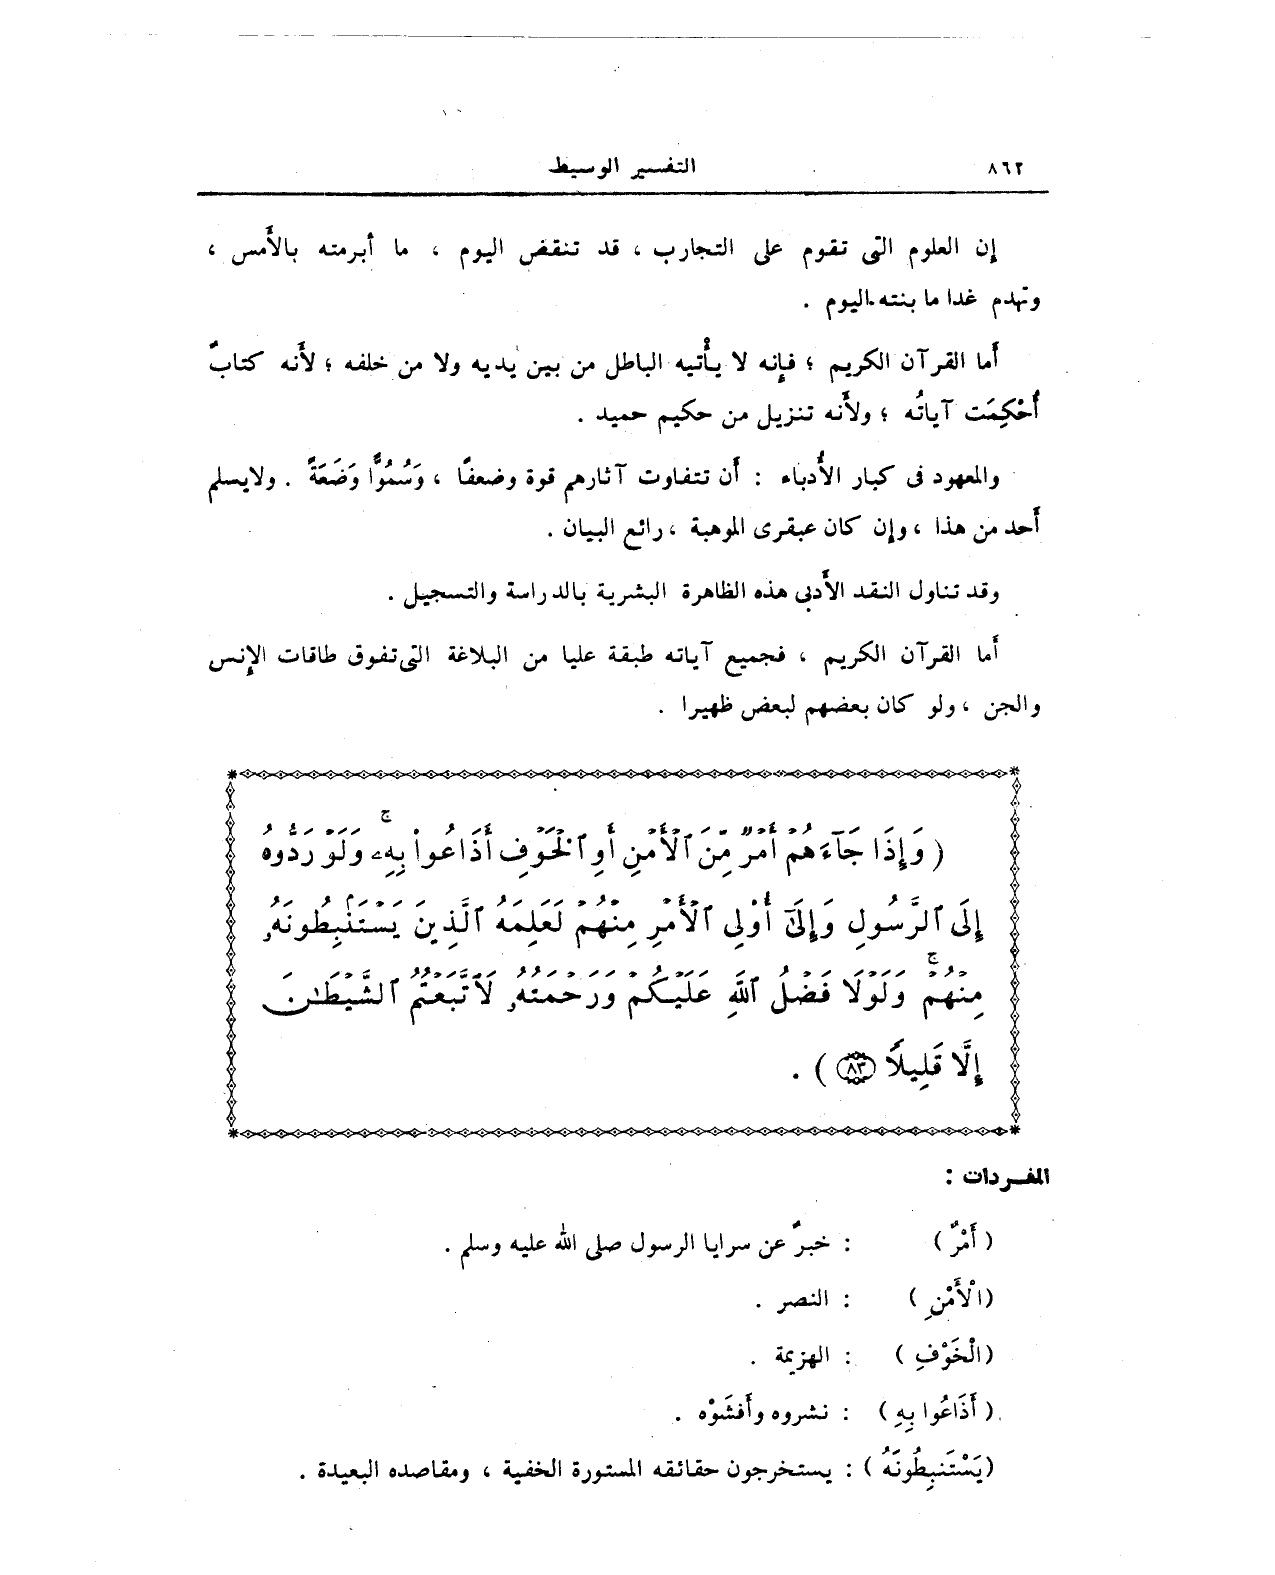 ٨٦٢
التفسير الوسيط
إن العلوم التى تقوم على التجارب ، قد تنقض اليوم ، ما أبرمته بالأَمس ،
وتهدم غدا ما بنته اليوم .
أَما القرآن الكريم ؛ فإِنه لا يأْتيه الباطل من بين يديه ولا من خلفه ؛ لأَنه كتابٌ
أُحْكِمَت آياتُه ؛ ولأَنه تنزيل من حكيم حميد .
والمعهود فى كبار الأُدباء : أَن تتفاوت آثارهم قوة وضعفًا ، وَسُمُوًّا وَضَعَةً . ولايسلم
أَحد من هذا ، وإِن كان عبقرى الموهبة ، رائع البيان .
وقد تناول النقد الأَدبى هذه الظاهرة البشرية بالدراسة والتسجيل .
أَما القرآن الكريم ، فجميع آياته طبقة عليا من البلاغة التى تفوق طاقات الإِنس
والجن ، ولو كان بعضهم لبعض ظهيرا .
( وَإِذَا جَآءَهُمْ أَمْرٌ مِّنَ ٱلْأَمْنِ أَوِ ٱلْخَوْفِ أَذَاعُوا۟ بِهِۦ ۚ وَلَوْ رَدُّوهُ
إِلَى ٱلرَّسُولِ وَإِلَىٰٓ أُو۟لِى ٱلْأَمْرِ مِنْهُمْ لَعَلِمَهُ ٱلَّذِينَ يَسْتَنۢبِطُونَهُۥ
مِنْهُمْ ۗ وَلَوْلَا فَضْلُ ٱللَّهِ عَلَيْكُمْ وَرَحْمَتُهُۥ لَٱتَّبَعْتُمُ ٱلشَّيْطَٰنَ
إِلَّا قَلِيلًا ٨٣ ) .
المفردات :
( أَمْرٌ ) : خبرٌ عن سرايا الرسول صلى الله عليه وسلم .
(الْأَمْنِ ) : النصر .
(الْخَوْفِ ) : الهزيمة .
( أَذَاعُوا بِهِ ) : نشروه وأَفشَوْه .
(يَسْتَنبِطُونَهُ ) : يستخرجون حقائقه المستورة الخفية ، ومقاصده البعيدة .